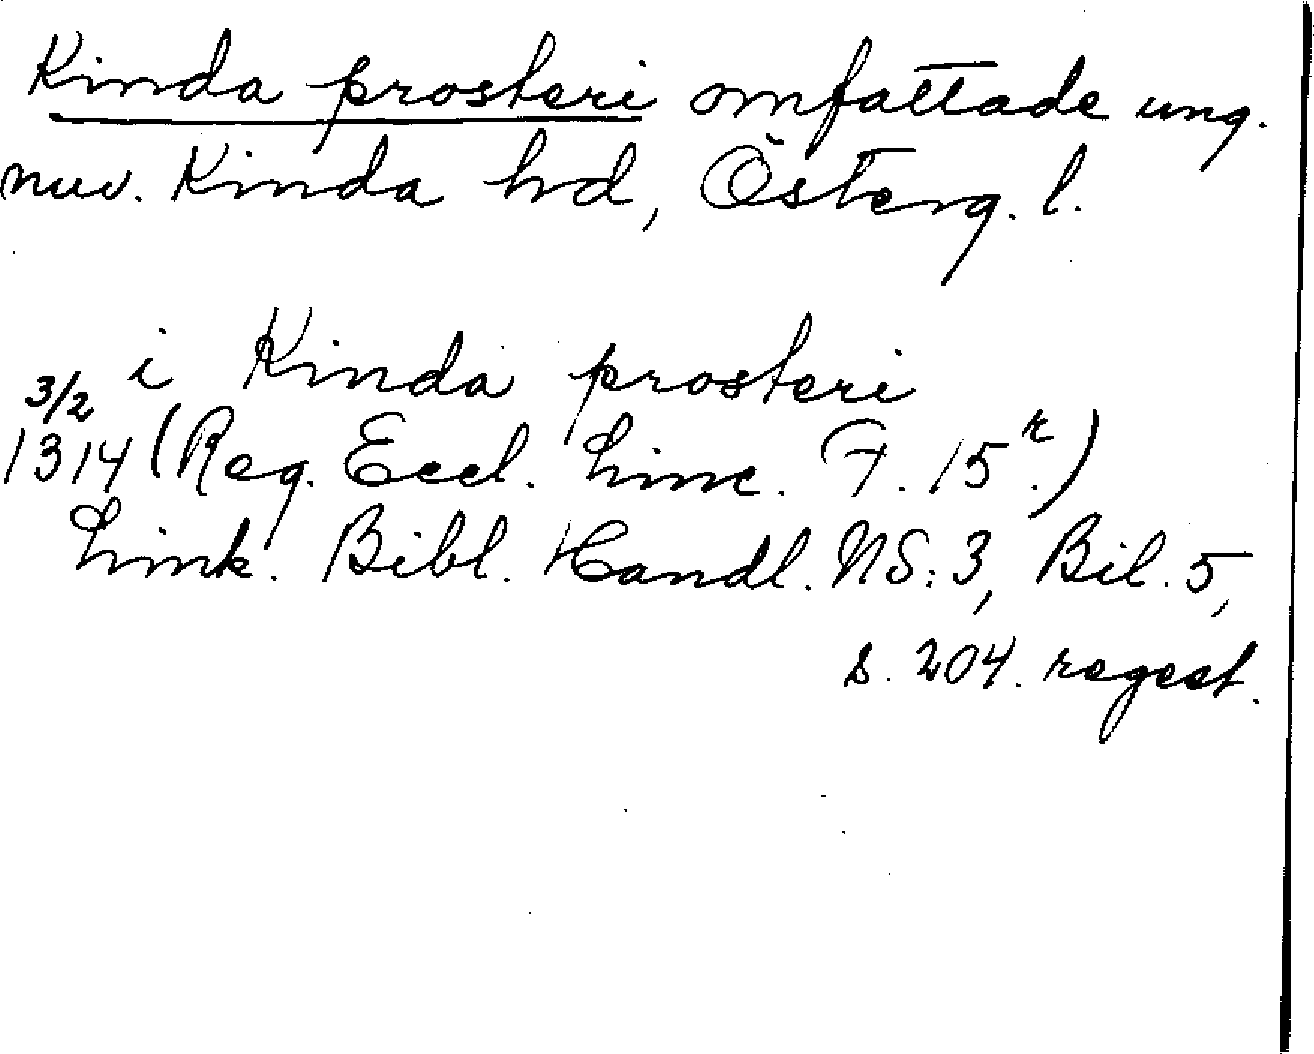 Kinda prosteri omfattade ung.
nuv. Kinda hd, Österg. l.
i Kinda prosteri
3/2
1314 (Reg. Eccl. Linc. F. 15r.)
Link. Bibl. Handl. NS: 3, Bil. 5,
s. 204. regest.